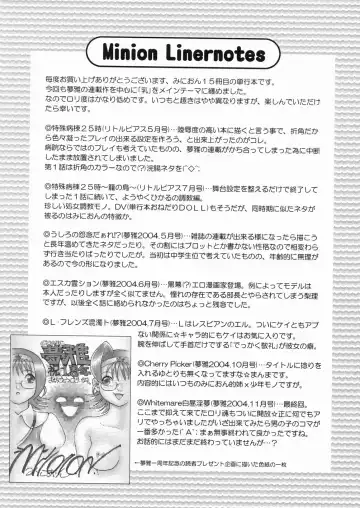 Minion Linernotes
毎度お買い上げありがとうございます、みにおん15冊目の単行本です。
今回も夢雅の連載作を中心に「乳」をメインテーマに纏めました。
なのでロリ度はかなり低めです。いつもと趣きはやや異なりますが、楽しんでいただけ
たら幸いです。
◎特殊病棟25時(リトルピアス5月号)…陵辱度の高い本に描くと言う事で、折角だか
ら色々凝ったプレイの出来る設定を作ろう、と出来上がったのがコレ。
病院ならではのプレイも考えていたものの、夢雅の連載がかち合ってしまった為に中断
したまま放置されてしまいました。
第1話は折角のカラーなので(?)浣腸ネタを(^◇^;
◎特殊病棟25時~籠の鳥~(リトルピアス7月号)…舞台設定を整えるだけで終了して
しまった1話に続いて、ようやくひかるの調教編。
珍しい処女調教モノ、DV(単行本おねだりDOLL)もそうだが、同時期に似たネタが
被るのはみにおんの特徴か。
◎うしろの怨念だぁれ!?(夢雅2004.5月号)…雑誌の連載が出来る様になったら描こう
と長年温めてきたネタだったり。その割にはプロットとか書かない性格なので相変わら
ず行き当たりばったりでしたが。当初は中学生位で考えていたものの、年齢的に無理が
あるので今の形になりました。
◎エスカ霊ション(夢雅2004.6月号)…黒幕(?)エロ漫画家登場。例によってモデルは
本人だったりしますが全く似てません。憧れの存在である部長とやらされてしまう梨理
ですが、以後全く話に絡められなかったのはちょっと残念でした。
◎L・フレンズ悪濁ト(夢雅2004.7月号)…Lはレスビアンのエル。ついにケイともアブ
ない関係に☆キャラ的にもケイはお気に入りです。
腕を伸ばして手首だけでする「でっかく敬礼」が彼女の癖。
◎Cherry Picker(夢雅2004.10月号)…タイトルに捻りを
入れるゆとりも無くなってますな☆まんまです。
内容的にはいつものみにおん的姉×少年モノですが。
◎Whitemare白昼淫夢(夢雅2004.11月号)…最終回。
ここまで抑えて来てたロリ魂もついに開放☆正に何でもア
リでやっちゃいましたがいざ出来てみたら男の子のコマが
一番多かった(´A`;まぁ無事終われて良かったですね。
お話的にはまだまだ終わっていませんが…?
←夢雅一周年記念の読者プレゼント企画に描いた色紙の一枚